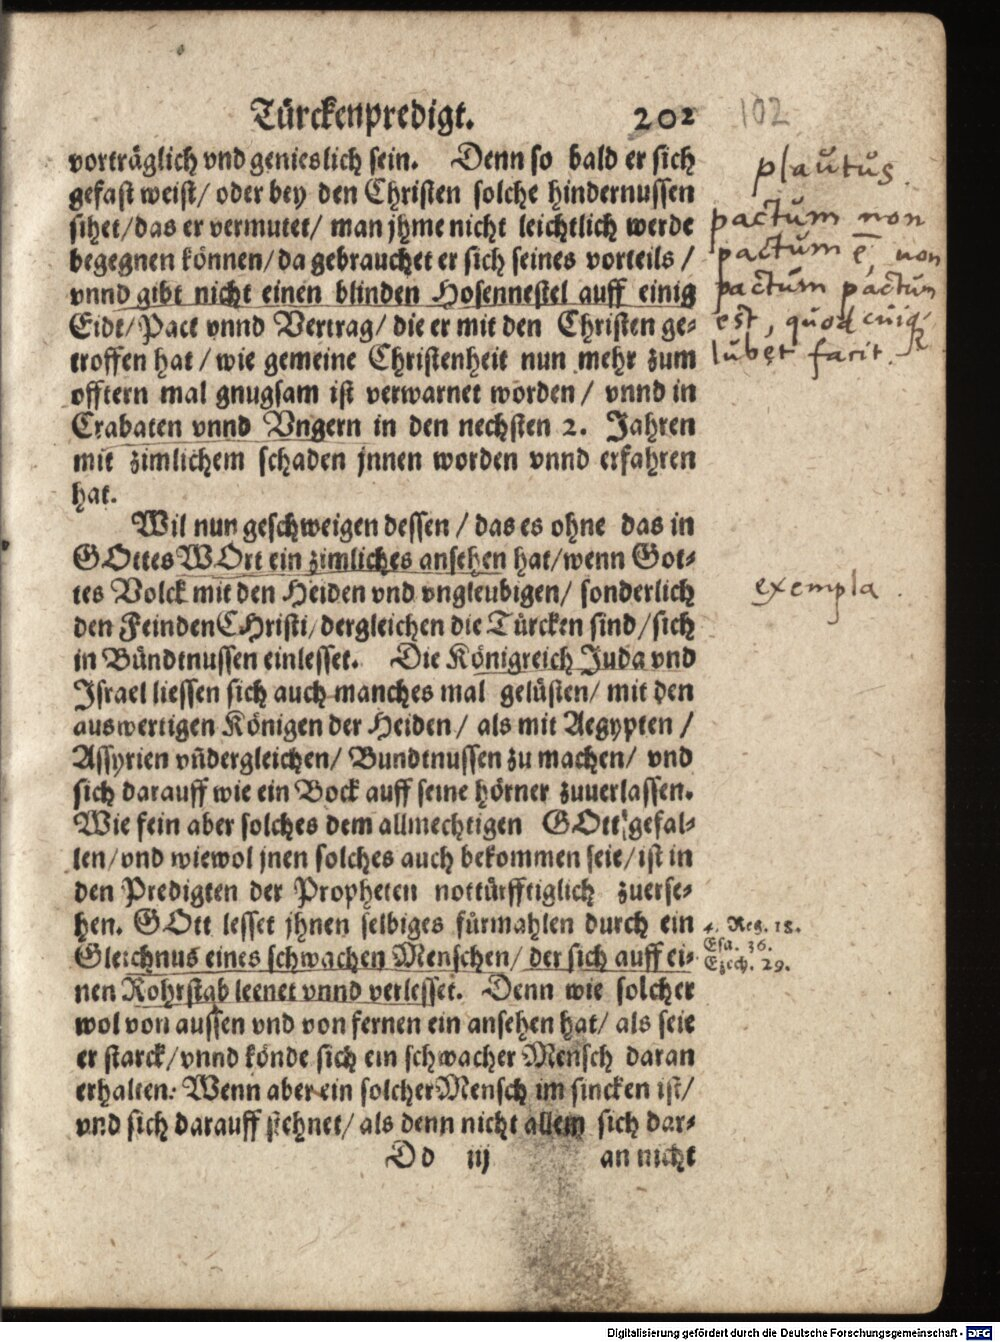 Türckenpredigt. 202 102
vorträglich vnd genieslich sein. Denn so bald er sich
gefast weist/ oder bey den Christen solche hindernussen
sihet/das er vermutet/ man jhme nicht leichtlich werde
begegnen können/da gebrauchet er sich seines vorteils/
vnnd gibt nicht einen blinden Hosennestel auff einig
Eidt/Pact vnnd Vertrag/ die er mit den Christen ge-
troffen hat/ wie gemeine Christenheit nun mehr zum
offtern mal gnugsam ist verwarnet worden/ vnnd in
Crabaten vnnd Vngern in den nechsten 2. Jahren
mit zimlichem schaden jnnen worden vnnd erfahren
hat.
Wil nun geschweigen dessen/ das es ohne das in
GOttes WOrt ein zimliches ansehen hat/wenn Got-
tes Volck mit den Heiden vnd vngleubigen/ sonderlich
den Feinden CHristi/dergleichen die Türcken sind/sich
in Bündtnussen einlesset. Die Königreich Juda vnd
Israel liessen sich auch manches mal gelüsten/ mit den
auswertigen Königen der Heiden/ als mit Aegypten/
Assyrien vñ dergleichen/ Bundtnussen zu machen/ vnd
sich darauff wie ein Bock auff seine hörner zuuerlassen.
Wie fein aber solches dem allmechtigen GOtt gefal-
len/vnd wiewol jnen solches auch bekommen seie/ist in
den Predigten der Propheten nottürfftiglich zuerse-
hen. GOtt lesset jhnen selbiges fürmahlen durch ein
Gleichnus eines schwachen Menschen/ der sich auff ei-
nen Rohrstab leenet vnnd verlesset. Denn wie solcher
wol von aussen vnd von fernen ein ansehen hat/ als seie
er starck/vnnd könde sich ein schwacher Mensch daran
erhalten: Wenn aber ein solcher Mensch im sincken ist/
vnd sich darauff stehnet/ als denn nicht allein sich dar-
Dd iij an nicht
plautus.
pactum non
pactum ē, non
pactum pactum
est, quod cuiq
lubet facit.
exempla.
4. Reg. 18.
Esa. 36.
Ezech. 29.
Digitalisierung gefördert durch die Deutsche Forschungsgemeinschaft - DFG